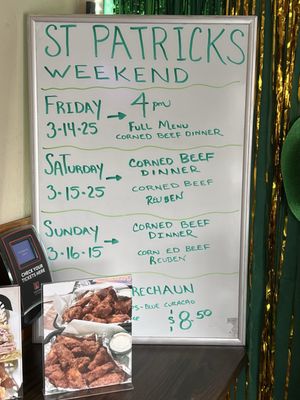 ST PATRICKS
WEEKEND
FRIDAY → 4 pm
3-14-25 FULL MENU
CORNED BEEF DINNER
SATURDAY → CORNED BEEF
DINNER
3-15-25 CORNED BEEF
REUBEN
SUNDAY → CORNED BEEF
DINNER
3-16-15 CORN ED BEEF
REUBEN
RECHAUN
BLUE CURACAO
$8.50
CHECK YOUR
TICKETS HERE